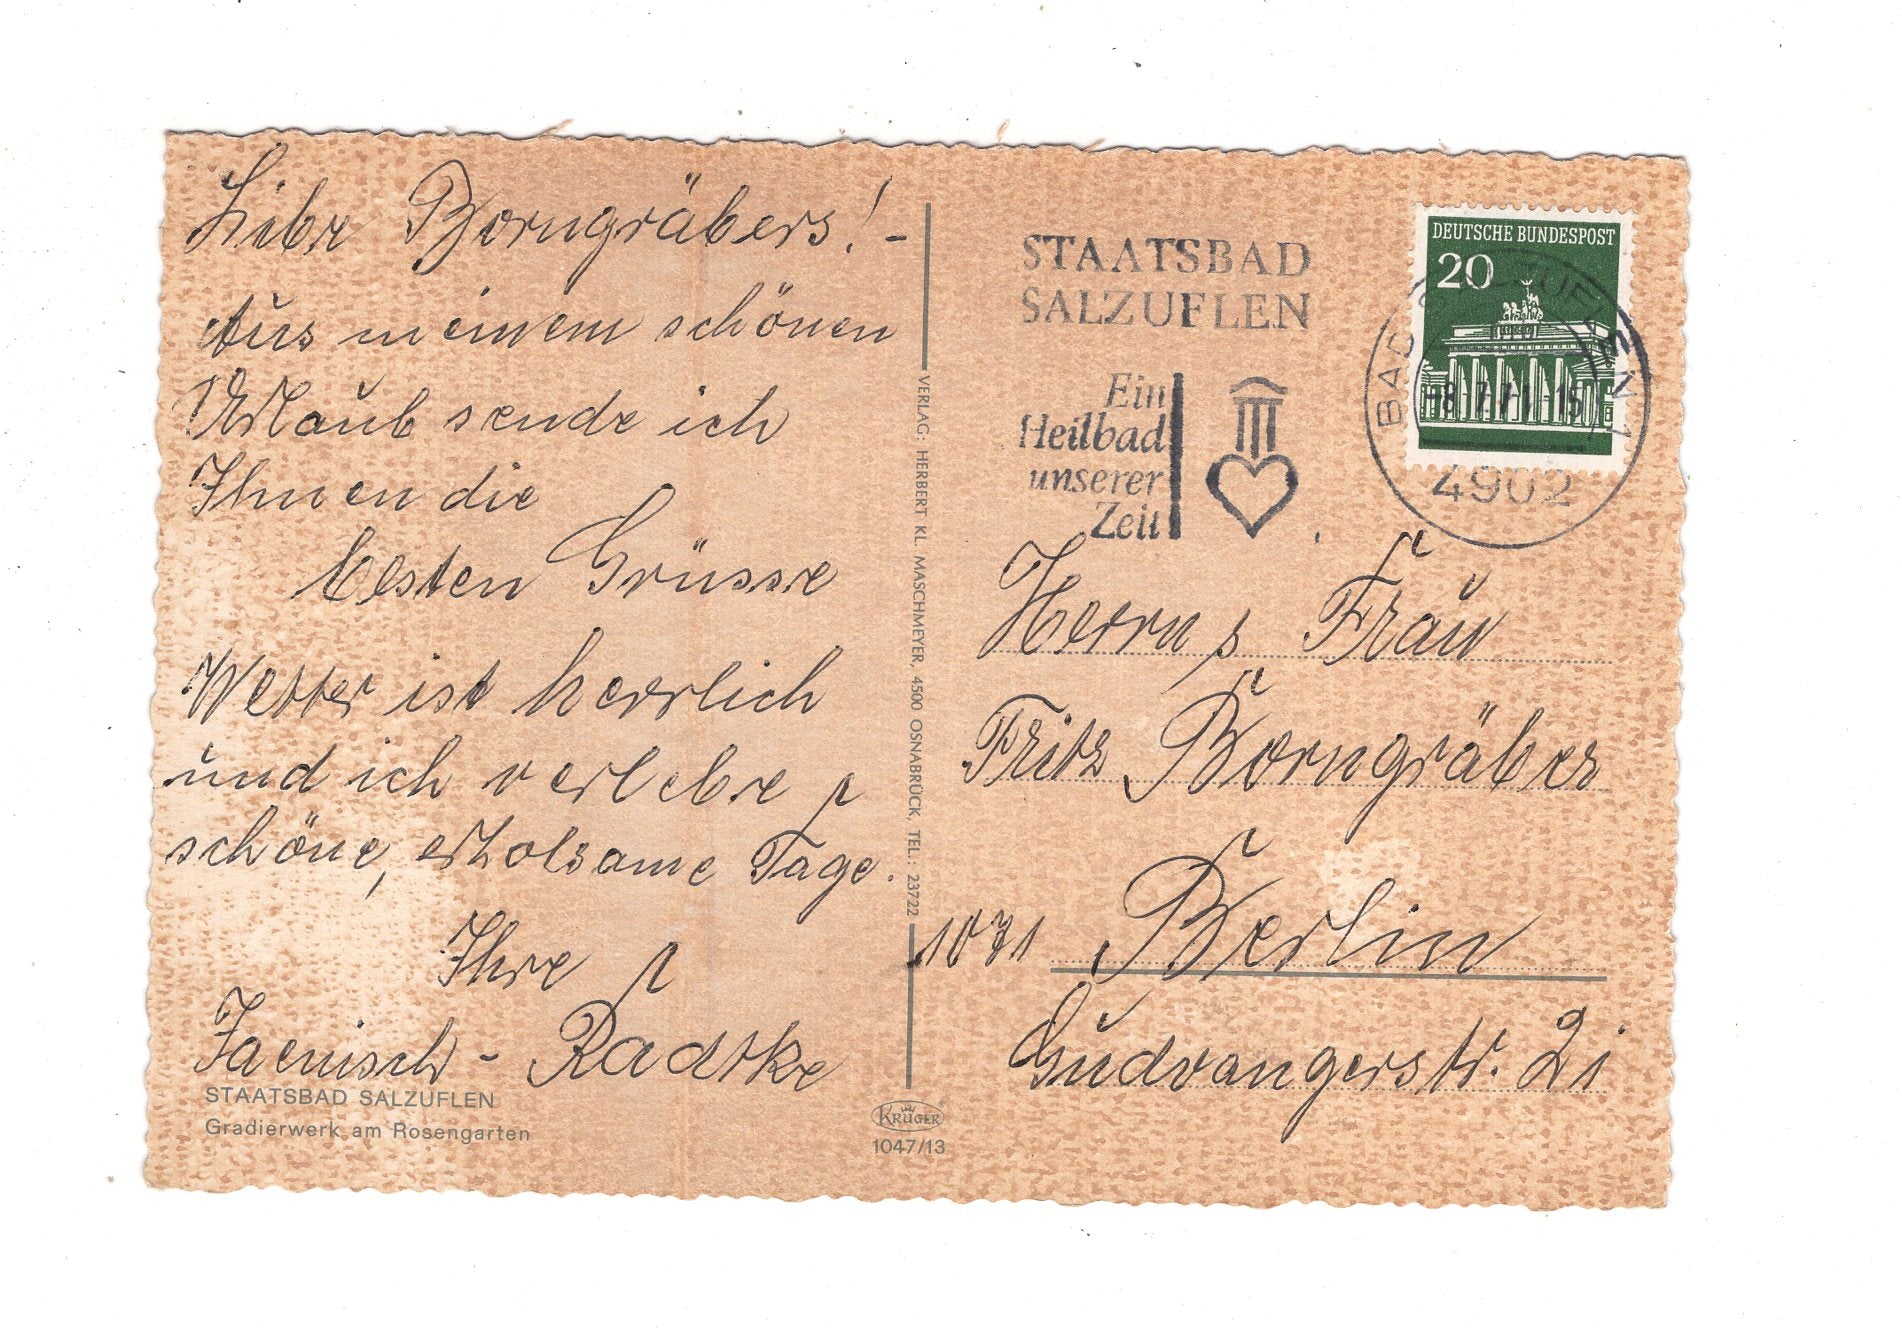 Liebe Borngräbers! -
Aus meinem schönen
Urlaub sende ich
Ihnen die
besten Grüsse
Wetter ist herrlich
und ich verlebe
schöne, erholsame Tage.
Ihre
Jaenisch - Radtke
STAATSBAD SALZUFLEN
Gradierwerk am Rosengarten
VERLAG: HERBERT KL. MASCHMEYER, 4500 OSNABRÜCK, TEL.: 23722
KRÜGER
1047/13
STAATSBAD
SALZUFLEN
Ein
Heilbad
unserer
Zeit
DEUTSCHE BUNDESPOST
20
BAD SALZUFLEN 1
-8.7.71-15
4902
Herrn Frau
Fritz Borngräber
1071 Berlin
Gudvangerstr. 21